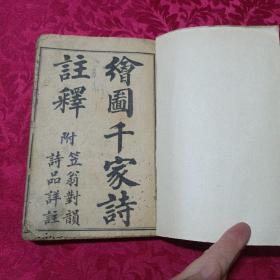 繪圖千家詩
註釋
附
笠翁對韻
詩品詳註